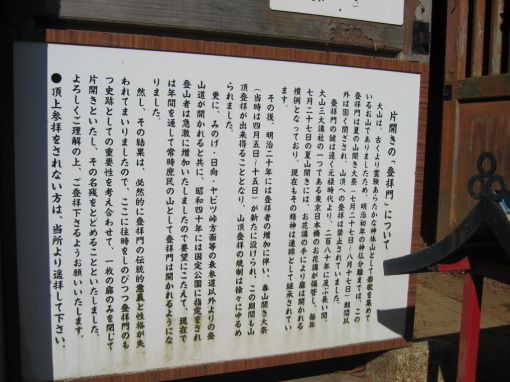 片開きの「登拝門」について
大山は、古くより霊験あらたかな神体山として崇敬を集めて
いるお山でありましたため、明治初年の神仏分離までは、この
登拝門は夏の山開き大祭(七月二十七日〜八月十七日)期間以
外は固く閉ざされ、山頂への登拝は禁止されていました。
登拝門の鍵は遠く元禄時代より、二百八十年に及ぶ長い間、
大山三大講社の一つである東京日本橋のお花講が保管し、毎年
七月二十七日の夏山開きには、お花講の手により扉は開かれる
慣例となっており、現在もその精神は連綿として継承されてい
ます。
その後、明治二十年には登拝者の増加に伴い、春山開き大祭
(当時は四月五日〜十五日)が新たに設けられ、この期間も山
頂登拝が出来得ることとなり、山頂登拝の規制は徐々にゆるめ
られました。
更に、みのげ・日向・ヤビツ峠方面等の表参道以外よりの登
山道が開かれると共に、昭和四十年には国定公園に指定をされ
登山者は急激に増加いたしましたので要望にこたえて、現在で
は年間を通して常時庶民の山として登拝門は開かれるようにな
りました。
然し、その結果は、必然的に登拝門の伝統的意義と性格が失
われてまいりましたので、ここに往時をしのびつつ登拝門のも
つ史跡としての重要性を考え合わせて、一枚の扉のみを閉じて
片開きといたし、その名残をとどめることといたしました。
よろしくご理解の上、ご登拝下さるようお願いいたします。
●頂上参拝をされない方は、当所より遥拝して下さい。